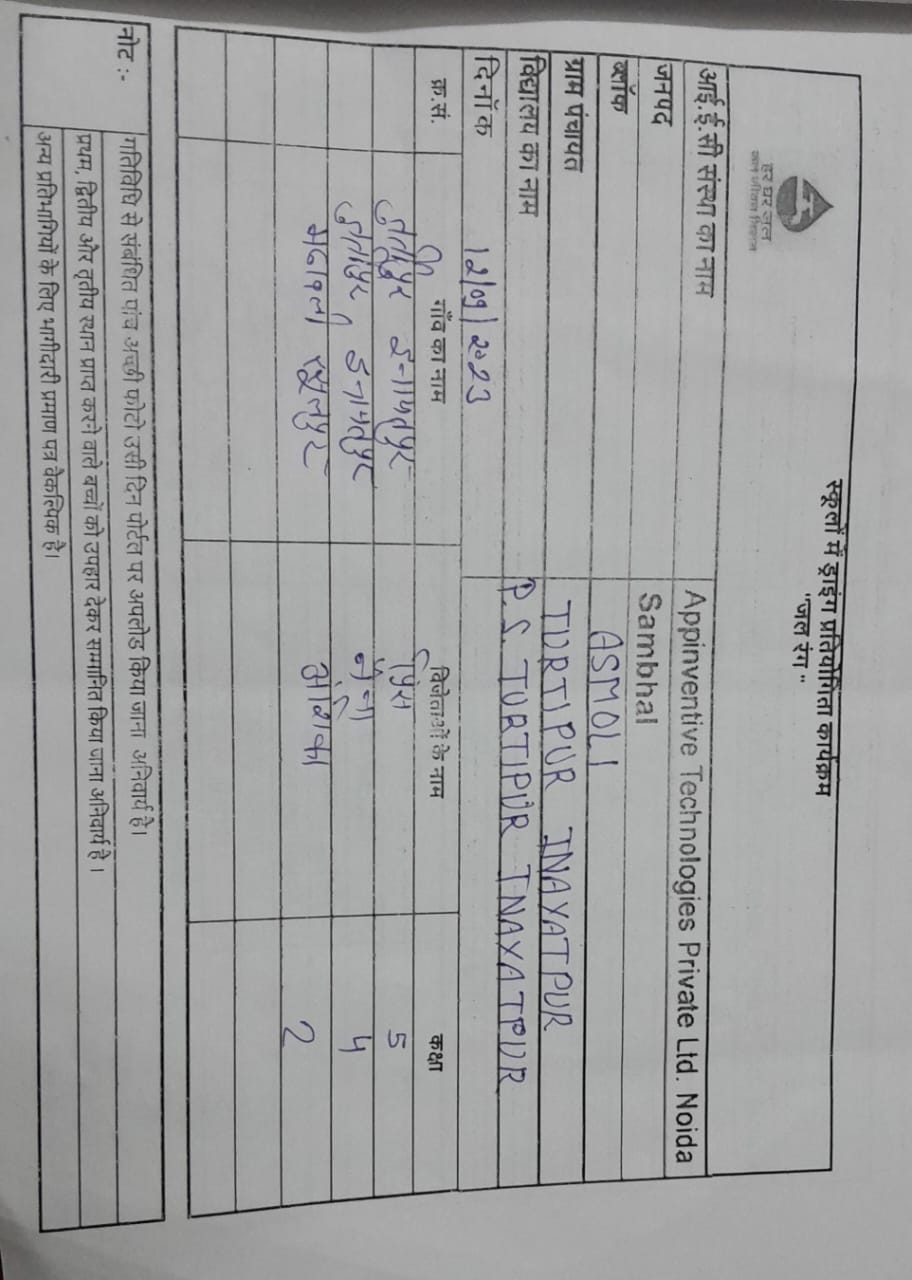 हर घर जल
जल जीवन मिशन
स्कूलों में ड्राइंग प्रतियोगिता कार्यक्रम
"जल रंग"
आई.ई.सी संस्था का नाम Appinventive Technologies Private Ltd. Noida
जनपद Sambhal
ब्लॉक ASMOLI
ग्राम पंचायत TURTIPUR INAYATPUR
विद्यालय का नाम P.S. TURTIPUR INAYATPUR
दिनाँक 12/09/2023
क्र.सं. गाँव का नाम विजेताओं के नाम कक्षा
इनायतपुर प्रिंस 5
इनायतपुर 4
रसूलपुर 2
नोट :- गतिविधि से संबंधित पांच अच्छी फोटो उसी दिन पोर्टल पर अपलोड किया जाना अनिवार्य है।
प्रथम, द्वितीय और तृतीय स्थान प्राप्त करने वाले बच्चों को उपहार देकर सम्मानित किया जाना अनिवार्य है।
अन्य प्रतिभागियों के लिए भागीदारी प्रमाण पत्र वैकल्पिक है।